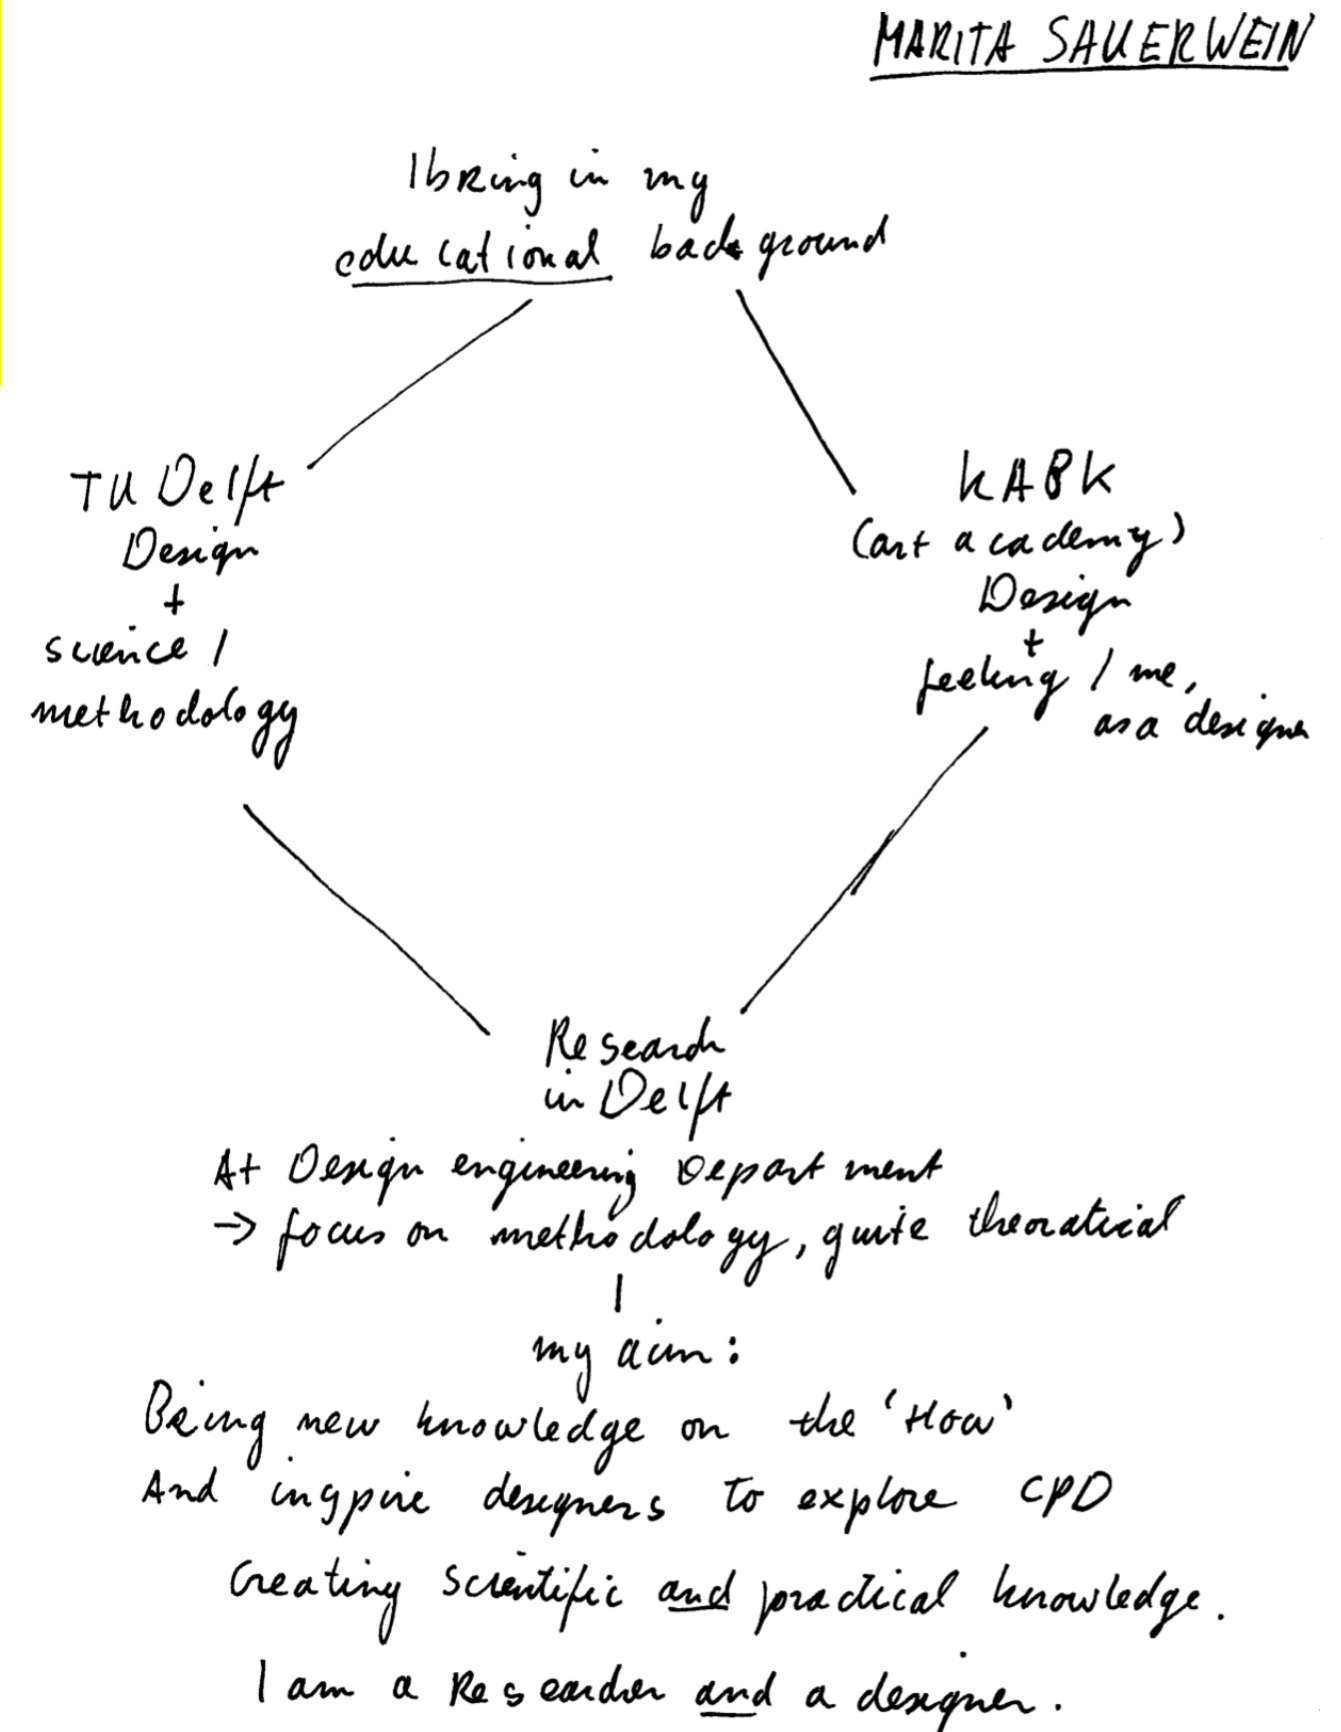 MARITA SAUERWEIN
I bring in my
educational background
TU Delft
Design
+
science /
methodology
KABK
(art academy)
Design
+
feeling / me,
as a designer
Research
in Delft
At Design engineering Department
→ focus on methodology, quite theoratical
my aim:
Bring new knowledge on the 'How'
And inspire designers to explore CPD
Creating scientific and practical knowledge.
I am a Researcher and a designer.